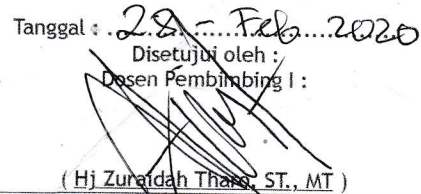 Tanggal : 28 - Feb 2020
Disetujui oleh :
Dosen Pembimbing I :
( Hj Zuraidah Tharo, ST., MT )